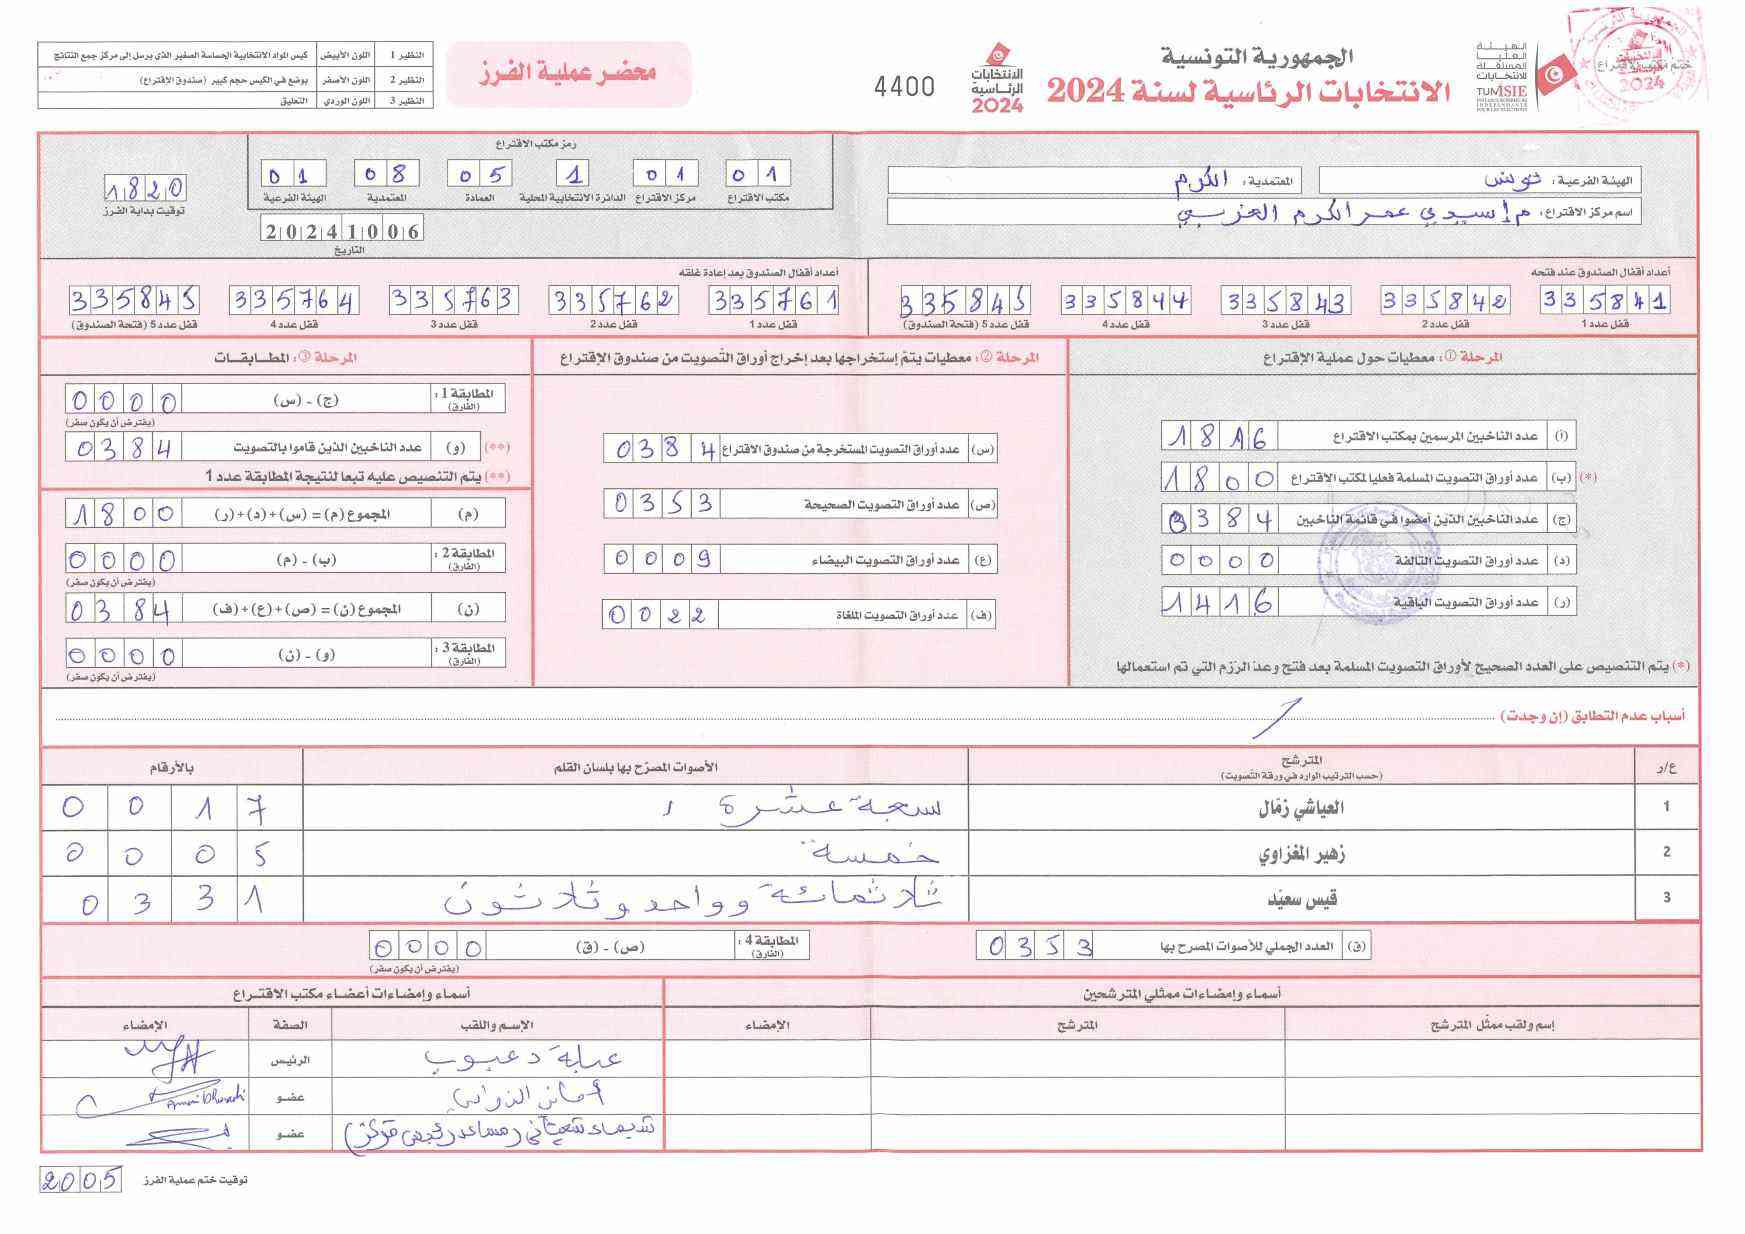 النظير 1 اللون الأبيض كيس المواد الانتخابية الحساسة الصغير الذي يرسل إلى مركز جمع النتائج
النظير 2 اللون الأصفر يوضع في الكيس حجم كبير (صندوق الاقتراع)
النظير 3 اللون الوردي التعليق
محضر عملية الفرز
4400
الانتخابات
الرئاسية
2024
الجمهورية التونسية
الانتخابات الرئاسية لسنة 2024
الهيئة
العليا
المستقلة
للانتخابات
TUNISIE
ختم مكتب الاقتراع
الهيئة الفرعية: تونس
المعتمدية: الكرم
اسم مركز الاقتراع: م إ سيدي عمر الكرم الغربي
رمز مكتب الاقتراع
01 01 1 05 08 01
مكتب الاقتراع مركز الاقتراع الدائرة الانتخابية المحلية العمادة المعتمدية الهيئة الفرعية
20241006
التاريخ
1820
توقيت بداية الفرز
أعداد أقفال الصندوق عند فتحه
335841 335842 335843 335844 335845
قفل عدد 1 قفل عدد 2 قفل عدد 3 قفل عدد 4 قفل عدد 5 (فتحة الصندوق)
أعداد أقفال الصندوق بعد إعادة غلقه
335761 335762 335763 335764 335845
قفل عدد 1 قفل عدد 2 قفل عدد 3 قفل عدد 4 قفل عدد 5 (فتحة الصندوق)
المرحلة ①: معطيات حول عملية الإقتراع
(أ) عدد الناخبين المرسمين بمكتب الاقتراع 1816
(*) (ب) عدد أوراق التصويت المسلمة فعليا لمكتب الاقتراع 1800
(ج) عدد الناخبين الذين أمضوا في قائمة الناخبين 0384
(د) عدد أوراق التصويت التالفة 0000
(ر) عدد أوراق التصويت الباقية 1416
(*) يتم التنصيص على العدد الصحيح لأوراق التصويت المسلمة بعد فتح وعد الرزم التي تم استعمالها
المرحلة ②: معطيات يتم إستخراجها بعد إخراج أوراق التصويت من صندوق الإقتراع
(س) عدد أوراق التصويت المستخرجة من صندوق الاقتراع 0384
(ص) عدد أوراق التصويت الصحيحة 0353
(ع) عدد أوراق التصويت البيضاء 0009
(ف) عدد أوراق التصويت الملغاة 0022
المرحلة ③: المطابقات
المطابقة 1: (الفارق) (ج) - (س) 0000
(يفترض أن يكون صفر)
(**) (و) عدد الناخبين الذين قاموا بالتصويت 0384
(**) يتم التنصيص عليه تبعا لنتيجة المطابقة عدد 1
(م) المجموع (م) = (س)+(د)+(ر) 1800
المطابقة 2: (الفارق) (ب) - (م) 0000
(يفترض أن يكون صفر)
(ن) المجموع (ن) = (ص)+(ع)+(ف) 0384
المطابقة 3: (الفارق) (و) - (ن) 0000
(يفترض أن يكون صفر)
أسباب عدم التطابق (إن وجدت)
ع/ر المترشح الأصوات المصرّح بها بلسان القلم بالأرقام
(حسب الترتيب الوارد في ورقة التصويت)
1 العياشي زمّال سبعة عشرة 0017
2 زهير المغزاوي خمسة 0005
3 قيس سعيّد ثلاثمائة وواحد وثلاثون 0331
(ق) العدد الجملي للأصوات المصرح بها 0353
المطابقة 4: (الفارق) (ص) - (ق) 0000
(يفترض أن يكون صفر)
أسماء وإمضاءات ممثلي المترشحين
إسم ولقب ممثّل المترشح المترشح الإمضاء
أسماء وإمضاءات أعضاء مكتب الاقتراع
الإسم واللقب الصفة الإمضاء
عبلة دعبوب الرئيس
عضو
شيماء عضو
توقيت ختم عملية الفرز 2005